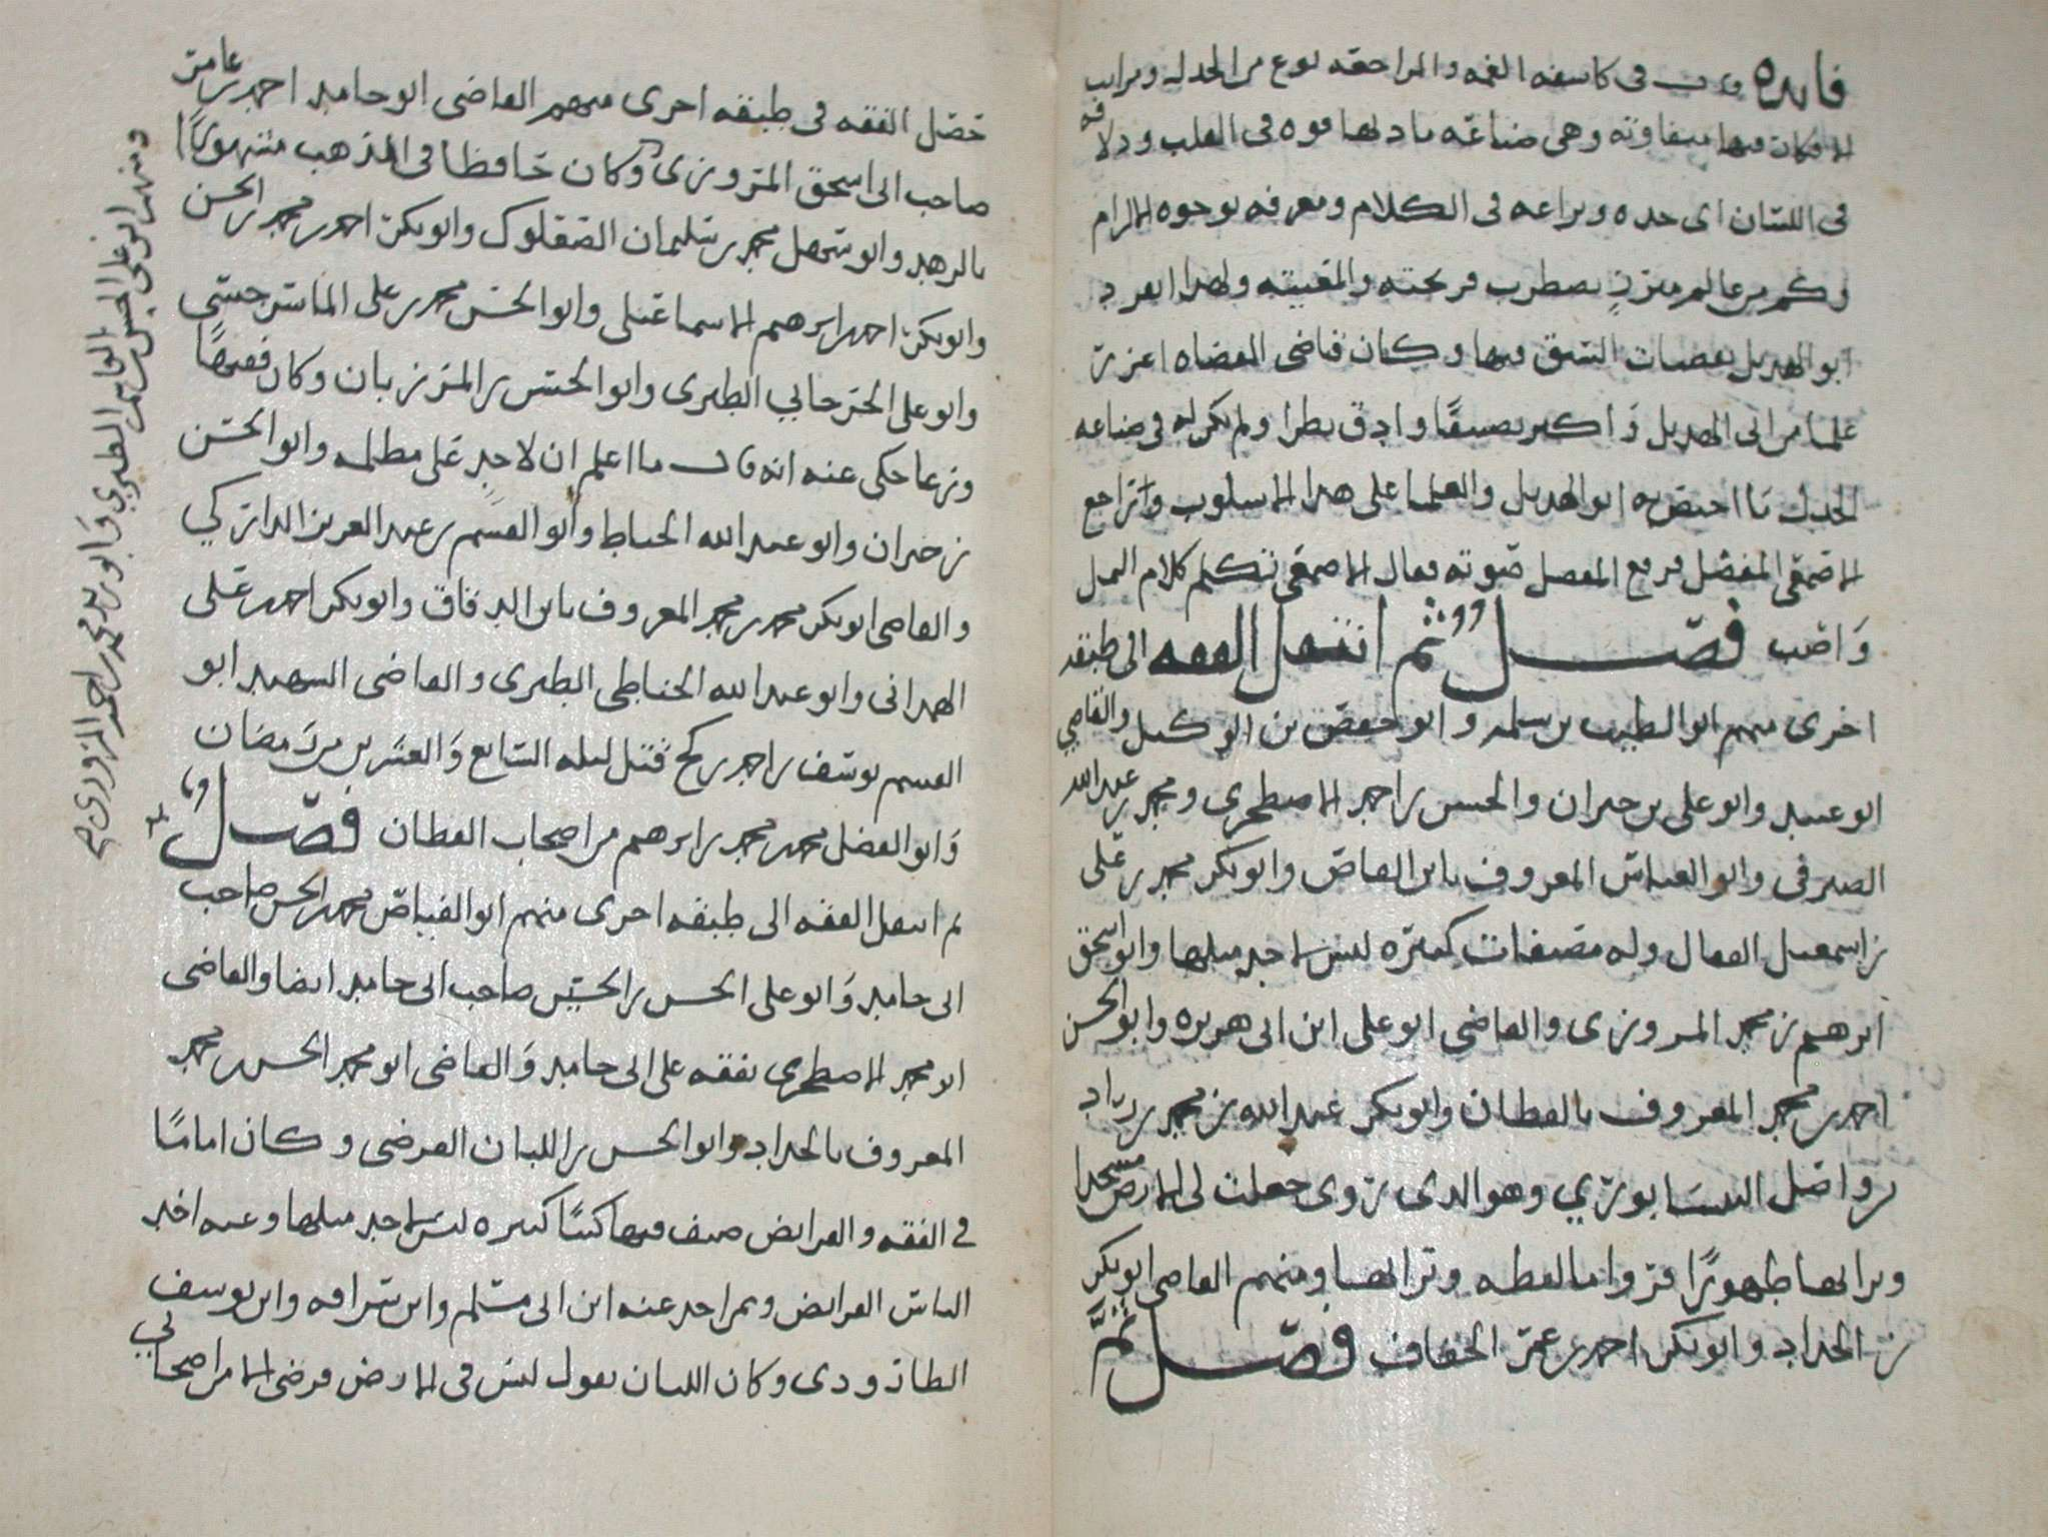 فايده في كاسفه الغمه والمراجعه نوع من الجدل ومراتب
الافكار فيها متفاوته وهي صناعه مادتها قوه في القلب ودلاقه
في اللسان اي حده وبراعه في الكلام ومعرفه بوجوه الالزام
وكم من عالم متزن يضطرب قريحته ولهذا انفرد
ابو الهذيل بقصبات السبق فيها وكان قاضي القضاه اغزر
علما من ابي الهذيل واكثر تصنيفا وادق نظرا ولم يكن له في صناعه
الجدل ما اختص به ابو الهذيل والعلما على هذا الاسلوب وتراجع
الاصمعي المفضل فرفع المفضل صوته فقال الاصمعي تكلم كلام النمل
واصب فصل ثم انتقل الفقه الى طبقه
اخرى منهم ابو الطيب بن سلمه وابو حفص بن الوكيل والقاضي
ابو عبيد وابو علي بن خيران والحسن بن احمد الاصطخري ومحمد بن عبد الله
الصيرفي وابو العباس المعروف بابن القاص وابو بكر محمد بن علي
بن اسمعيل القفال وله مصنفات كثيره ليس لاحد مثلها وابو اسحق
ابرهيم بن محمد المروزي والقاضي ابو علي ابن ابي هريره وابو الحسن
احمد بن محمد المعروف بالقطان وابو بكر عبد الله بن محمد بن زياد
بن واصل النيسابوري وهو الذي روى جعلت لي الارض مسجدا
وترابها طهورا فزوا باللفظه وترابها ومنهم القاضي ابو بكر
بن الحداد وابو بكر احمد بن عمر الخفاف فصل ثم
حصل الفقه في طبقه اخرى منهم القاضي ابو حامد احمد بن عامر
صاحب ابي اسحق المروزي وكان حافظا في المذهب مشهورا
بالزهد وابو سهل محمد بن سليمان الصعلوكي وابو بكر احمد بن محمد بن الحسن
وابو بكر احمد بن ابرهيم الاسماعيلي وابو الحسن محمد بن علي الماسرجسي
وابو علي الزجاجي الطبري وابو الحسن بن المرزبان وكان فقيها
ورعا حكي عنه انه قال ما اعلم ان لاحد علي مظلمه وابو الحسن
بن خيران وابو عبد الله الخياط وابو القسم بن عبد العزيز الداركي
والقاضي ابو بكر محمد بن محمد المعروف بابن الدقاق وابو بكر احمد بن علي
الهمداني وابو عبد الله الحناطي الطبري والقاضي الشهيد ابو
القسم يوسف بن احمد بن كج قتل ليله السابع والعشرين من رمضان
وابو الفضل محمد بن محمد بن ابرهيم من اصحاب القطان فصل
ثم انتقل الفقه الى طبقه اخرى منهم ابو الفياض محمد بن الحسن صاحب
ابي حامد وابو علي الحسن بن الحسين صاحب ابي حامد ايضا والقاضي
ابو محمد الاصطخري تفقه على ابي حامد والقاضي ابو محمد الحسن بن محمد
المعروف بالحداد وابو الحسن بن اللبان الفرضي وكان اماما
في الفقه والفرايض صنف فيها كتبا كثيره ليس لاحد مثلها وعنه اخذ
الناس الفرايض وممن اخذ عنه ابن ابي مسلم وابن سراقه وابو يوسف
الطازودي وكان اللبان يقول ليس في الارض فرضي الا من اصحابي
ومنهم ابو علي الحسن بن القاسم الطبري وابو زيد محمد بن احمد المروزي صح